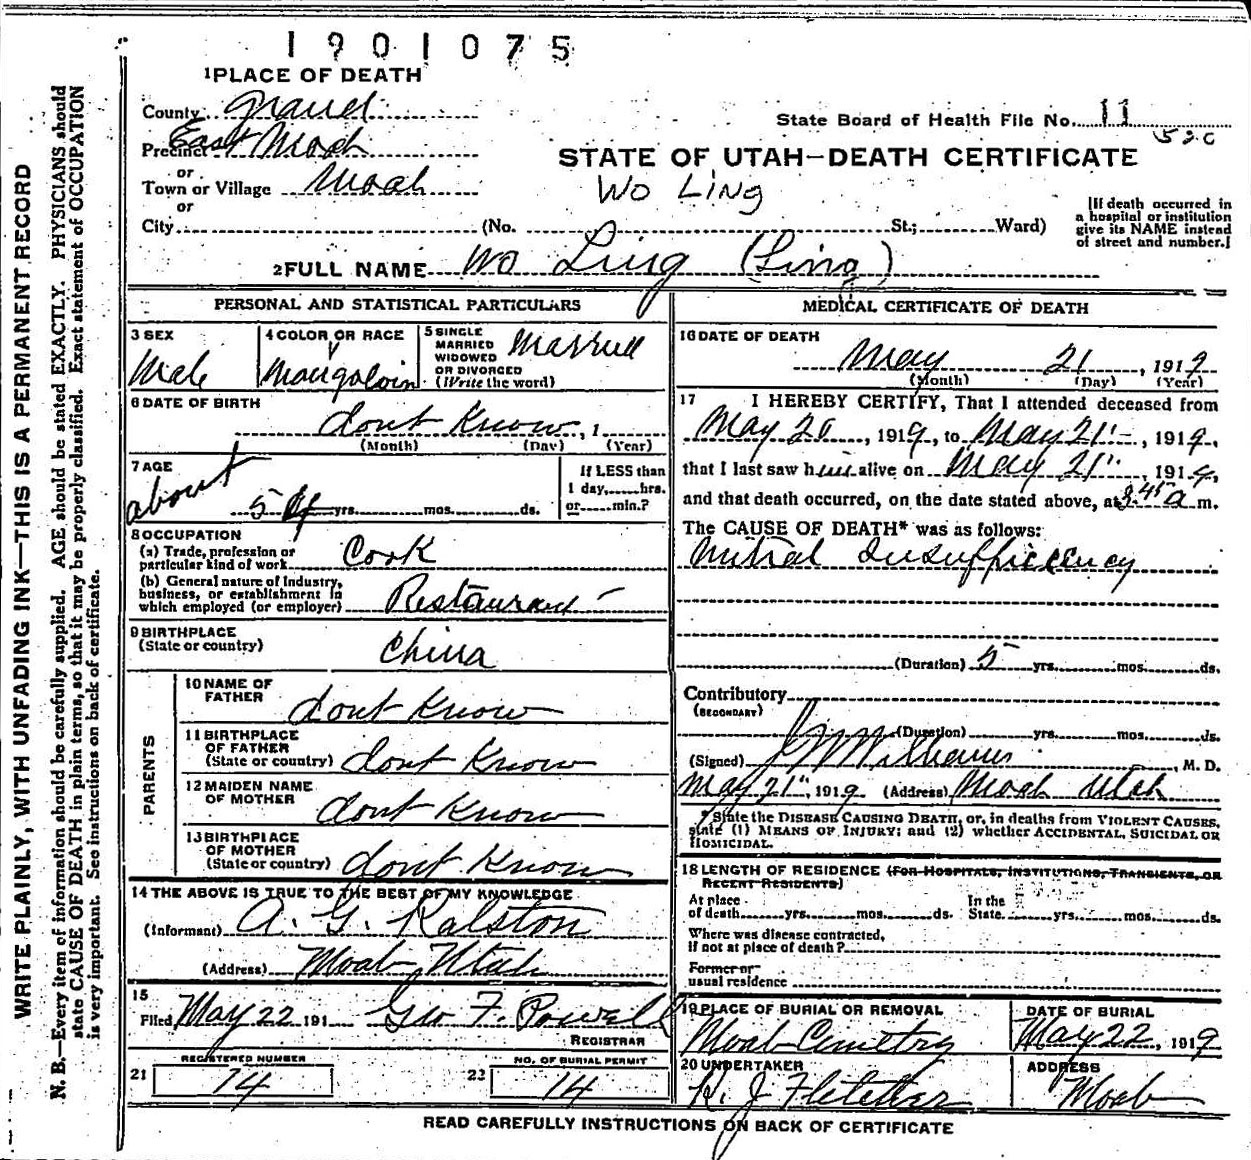 1901075
1 PLACE OF DEATH
County Grand
State Board of Health File No. 11
520
Precinct East Moab
STATE OF UTAH—DEATH CERTIFICATE
or
Town or Village Moab
WO LING
or
City (No. St.; Ward)
[If death occurred in
a hospital or institution
give its NAME instead
of street and number.]
2 FULL NAME Wo Ling (Ling)
PERSONAL AND STATISTICAL PARTICULARS
3 SEX
Male
4 COLOR OR RACE
Mongoloin
5 SINGLE
MARRIED
WIDOWED
OR DIVORCED
(Write the word)
Married
6 DATE OF BIRTH
dont Know, 1
(Month) (Day) (Year)
7 AGE
about
5 yrs. mos. ds.
If LESS than
1 day, hrs.
or min.?
8 OCCUPATION
(a) Trade, profession or
particular kind of work Cook
(b) General nature of Industry,
business, or establishment in
which employed (or employer) Restaurant
9 BIRTHPLACE
(State or country) China
PARENTS
10 NAME OF
FATHER dont Know
11 BIRTHPLACE
OF FATHER
(State or country) dont Know
12 MAIDEN NAME
OF MOTHER dont Know
13 BIRTHPLACE
OF MOTHER
(State or country) dont Know
14 THE ABOVE IS TRUE TO THE BEST OF MY KNOWLEDGE
(Informant) A. G. Ralston
(Address) Moab, Utah
15
Filed May 22 191 Geo F. Powell
REGISTRAR
REGISTERED NUMBER
21 14
NO. OF BURIAL PERMIT
22 14
MEDICAL CERTIFICATE OF DEATH
16 DATE OF DEATH
May 21, 1919
(Month) (Day) (Year)
17 I HEREBY CERTIFY, That I attended deceased from
May 20, 1919, to May 21", 1919,
that I last saw him alive on May 21", 1919,
and that death occurred, on the date stated above, at 3.45 a m.
The CAUSE OF DEATH* was as follows:
Mitral Insufficiency
(Duration) 5 yrs. mos. ds.
Contributory
(SECONDARY)
(Duration) yrs. mos. ds.
(Signed) J W Williams, M. D.
May 21", 1919 (Address) Moab Utah
*State the DISEASE CAUSING DEATH, or, in deaths from VIOLENT CAUSES,
state (1) MEANS OF INJURY; and (2) whether ACCIDENTAL, SUICIDAL OR
HOMICIDAL.
18 LENGTH OF RESIDENCE (FOR HOSPITALS, INSTITUTIONS, TRANSIENTS, OR
RECENT RESIDENTS)
At place
of death yrs. mos. ds.
In the
State yrs. mos. ds.
Where was disease contracted,
if not at place of death?
Former or
usual residence
19 PLACE OF BURIAL OR REMOVAL
Moab Cemetry
DATE OF BURIAL
May 22, 1919
20 UNDERTAKER
R. J. Fletcher
ADDRESS
Moab
READ CAREFULLY INSTRUCTIONS ON BACK OF CERTIFICATE
WRITE PLAINLY, WITH UNFADING INK—THIS IS A PERMANENT RECORD
N. B.—Every item of information should be carefully supplied. AGE should be stated EXACTLY. PHYSICIANS should
state CAUSE OF DEATH in plain terms, so that it may be properly classified. Exact statement of OCCUPATION
is very important. See instructions on back of certificate.